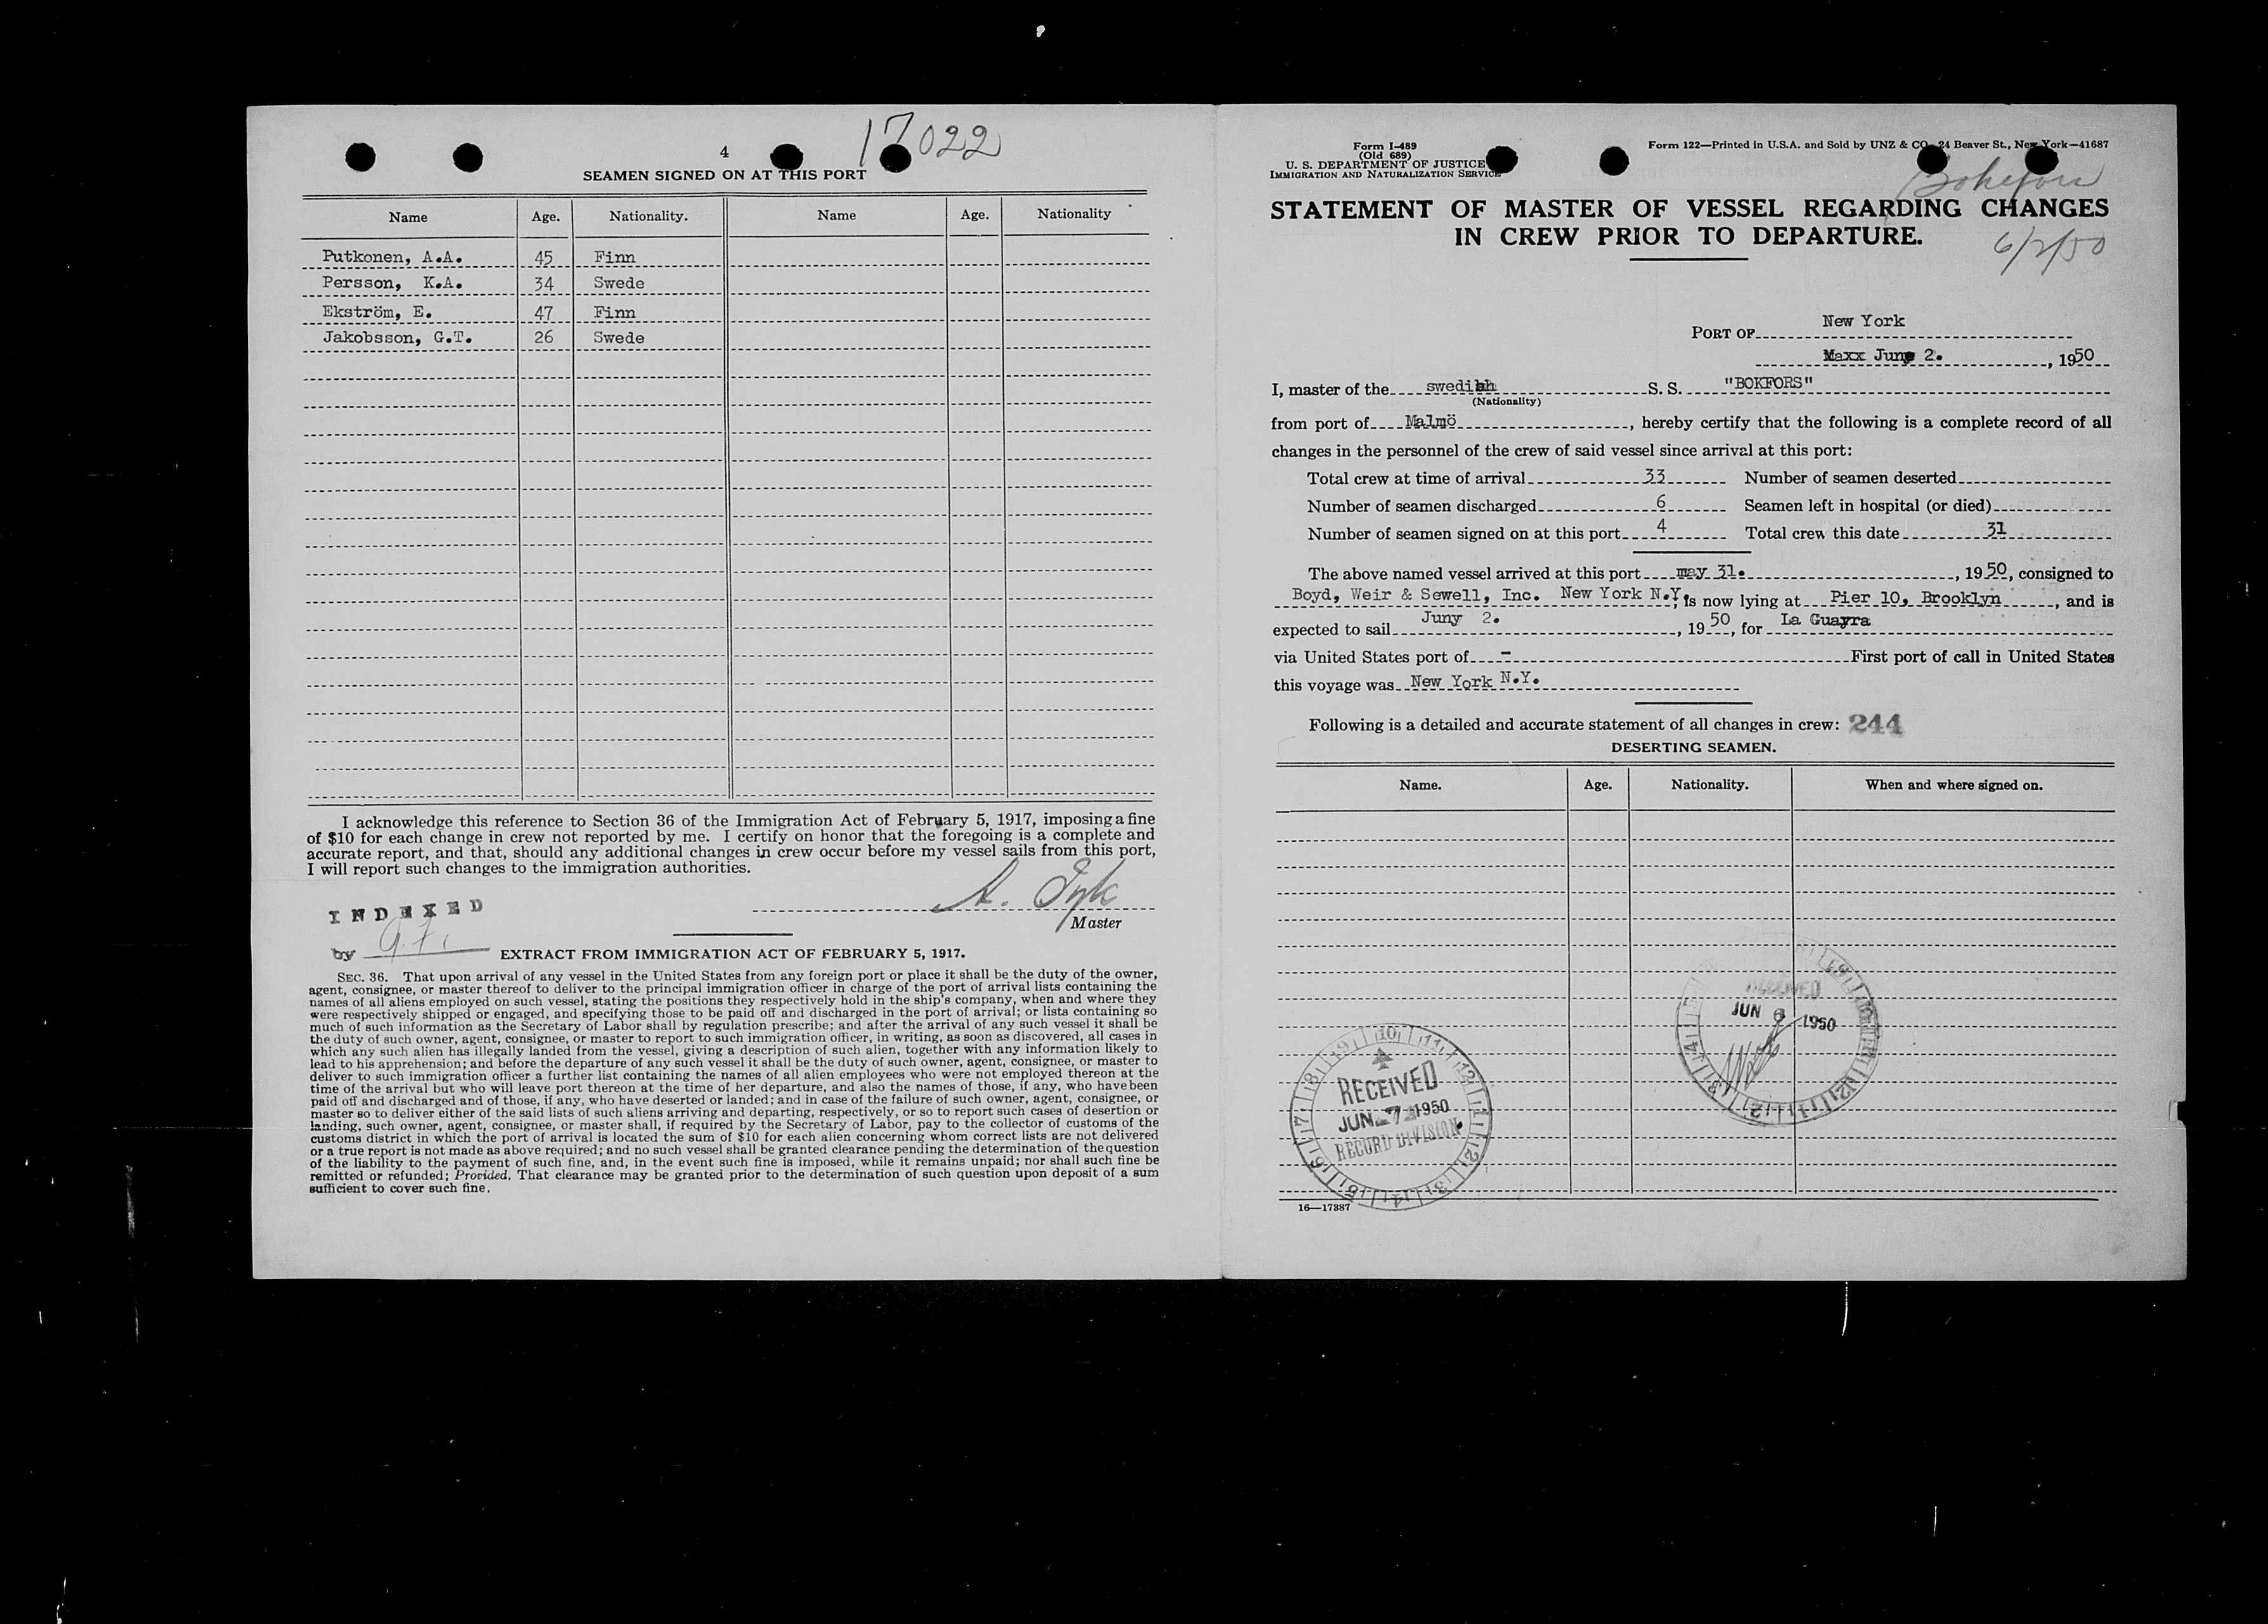 4
17022
SEAMEN SIGNED ON AT THIS PORT
Name Age. Nationality. Name Age. Nationality
Putkonen, A.A. 45 Finn
Persson, K.A. 34 Swede
Ekström, E. 47 Finn
Jakobsson, G.T. 26 Swede
I acknowledge this reference to Section 36 of the Immigration Act of February 5, 1917, imposing a fine
of $10 for each change in crew not reported by me. I certify on honor that the foregoing is a complete and
accurate report, and that, should any additional changes in crew occur before my vessel sails from this port,
I will report such changes to the immigration authorities.
INDEXED
by
Master
EXTRACT FROM IMMIGRATION ACT OF FEBRUARY 5, 1917.
SEC. 36. That upon arrival of any vessel in the United States from any foreign port or place it shall be the duty of the owner,
agent, consignee, or master thereof to deliver to the principal immigration officer in charge of the port of arrival lists containing the
names of all aliens employed on such vessel, stating the positions they respectively hold in the ship's company, when and where they
were respectively shipped or engaged, and specifying those to be paid off and discharged in the port of arrival; or lists containing so
much of such information as the Secretary of Labor shall by regulation prescribe; and after the arrival of any such vessel it shall be
the duty of such owner, agent, consignee, or master to report to such immigration officer, in writing, as soon as discovered, all cases in
which any such alien has illegally landed from the vessel, giving a description of such alien, together with any information likely to
lead to his apprehension; and before the departure of any such vessel it shall be the duty of such owner, agent, consignee, or master to
deliver to such immigration officer a further list containing the names of all alien employees who were not employed thereon at the
time of the arrival but who will leave port thereon at the time of her departure, and also the names of those, if any, who have been
paid off and discharged and of those, if any, who have deserted or landed; and in case of the failure of such owner, agent, consignee, or
master so to deliver either of the said lists of such aliens arriving and departing, respectively, or so to report such cases of desertion or
landing, such owner, agent, consignee, or master shall, if required by the Secretary of Labor, pay to the collector of customs of the
customs district in which the port of arrival is located the sum of $10 for each alien concerning whom correct lists are not delivered
or a true report is not made as above required; and no such vessel shall be granted clearance pending the determination of the question
of the liability to the payment of such fine, and, in the event such fine is imposed, while it remains unpaid; nor shall such fine be
remitted or refunded; Provided, That clearance may be granted prior to the determination of such question upon deposit of a sum
sufficient to cover such fine.
Form I-489
(Old 689)
U. S. DEPARTMENT OF JUSTICE
IMMIGRATION AND NATURALIZATION SERVICE
Form 122—Printed in U.S.A. and Sold by UNZ & CO. 24 Beaver St., New York—41687
STATEMENT OF MASTER OF VESSEL REGARDING CHANGES
IN CREW PRIOR TO DEPARTURE.
6/2/50
PORT OF New York
Maxx June 2. , 1950
I, master of the swedish S. S. "BOKFORS"
(Nationality)
from port of Malmö , hereby certify that the following is a complete record of all
changes in the personnel of the crew of said vessel since arrival at this port:
Total crew at time of arrival 33 Number of seamen deserted
Number of seamen discharged 6 Seamen left in hospital (or died)
Number of seamen signed on at this port 4 Total crew this date 31
The above named vessel arrived at this port may 31. , 1950, consigned to
Boyd, Weir & Sewell, Inc. New York N.Y. ; is now lying at Pier 10, Brooklyn , and is
expected to sail Juny 2. , 1950, for La Guayra
via United States port of - First port of call in United States
this voyage was New York N.Y.
Following is a detailed and accurate statement of all changes in crew: 244
DESERTING SEAMEN.
Name. Age. Nationality. When and where signed on.
JUN 6 1950
RECEIVED
JUN 7 1950
RECORD DIVISION
16—17887